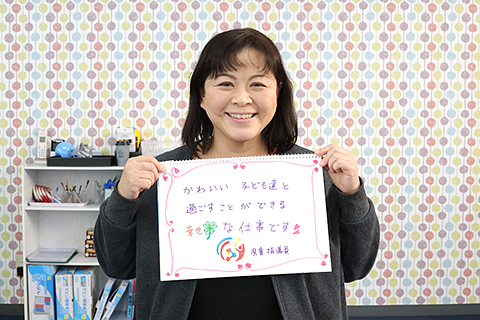 かわいい 子ども達と
過ごすことができる
幸せな仕事です
児童指導員